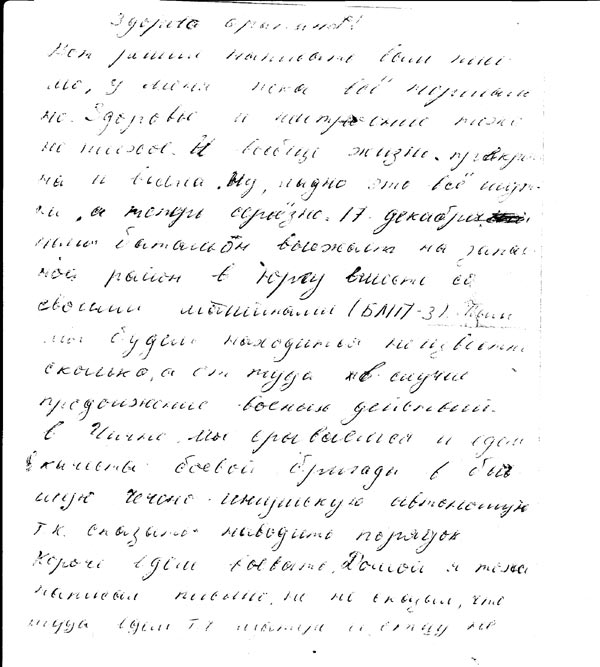 Здорово братишка!
Вот решил написать вам пись
мо, у меня пока всё нормаль
но. Здоровье и настроение тоже
не плохое. И вообще жизнь прекрас
на и
ну, ладно это всё шут
ки, а теперь серьёзно. 17 декабря
наш батальон выезжает на запас
ной район в Юргу вместе со
своими машинами (БМП-3). Там
мы будем находиться неизвестно
сколько, а от туда в случае
продолжение военых действий
в Чечне мы срываемся и едем
в качестве боевой бригады в быв
шую Чечено-ингушскую автономную
т.к. сказать наводить порядок
короче едем воевать. Домой я тоже
написал письмо, но не сказал, что
туда едем т.к. матери и отцу не